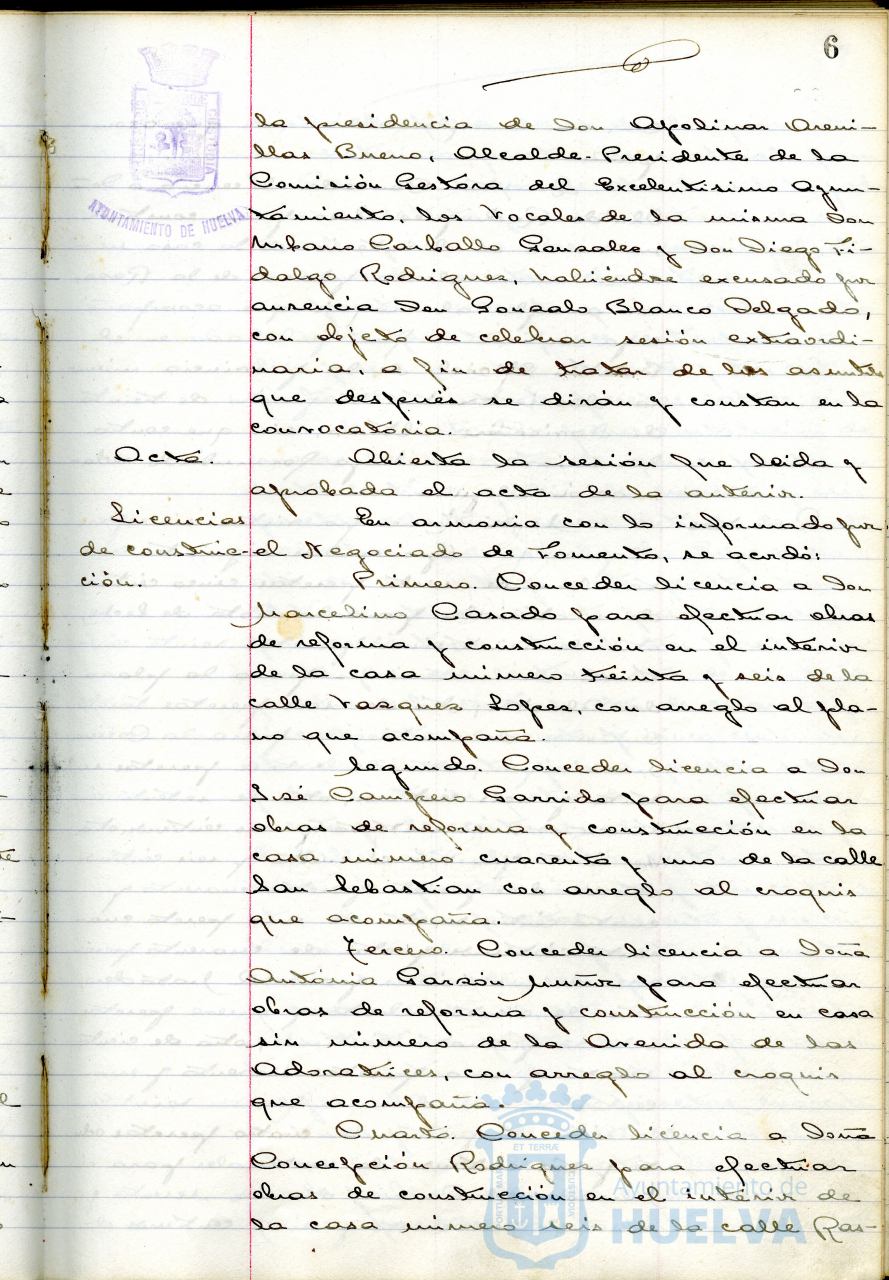 6
AYUNTAMIENTO DE HUELVA
la presidencia de Don Apolinar Areni-
llas Bueno, Alcalde-Presidente de la
Comisión Gestora del Excelentisimo Ayun-
tamiento, los Vocales de la misma Don
Urbano Carballo Gonzalez y Don Diego Fi-
dalgo Rodriguez, habiéndose excusado por
ausencia Don Gonzalo Blanco Delgado,
con objeto de celebrar sesión extraordi-
naria, a fin de tratar de los asuntos
que después se dirán y constan en la
convocatoria.
Acta.
Abierta la sesión fue leida y
aprobada el acta de la anterior.
Licencias
de construc-
ción.
En armonia con lo informado por
el Negociado de Fomento, se acordó:
Primero. Conceder licencia a Don
Marcelino Casado para efectuar obras
de reforma y construcción en el interior
de la casa número treinta y seis de la
calle Vazquez Lopez, con arreglo al pla-
no que acompaña.
Segundo. Conceder licencia a Don
José Campero Garrido para efectuar
obras de reforma y construcción en la
casa número cuarenta y uno de la calle
San Sebastian con arreglo al croquis
que acompaña.
Tercero. Conceder licencia a Doña
Antonia Garzón Muñoz para efectuar
obras de reforma y construcción en casa
sin número de la Avenida de las
Adoratrices, con arreglo al croquis
que acompaña.
Cuarto. Conceder licencia a Doña
Concepción Rodriguez para efectuar
obras de construcción en el interior de
la casa número seis de la calle Ras-
ET TERRÆ
PORTUS MARIS
CUSTODIA
Ayuntamiento de
HUELVA